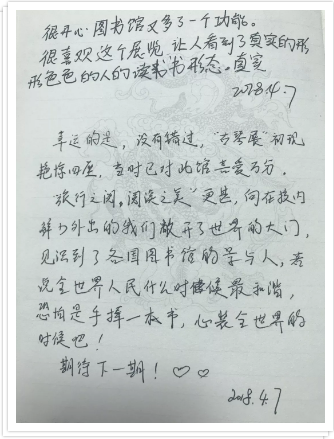 很开心图书馆又多了一个功能。
很喜欢这个展览 让人看到了真实的形
形色色的人的读书书形态。真实
2018.4.7
幸运的是，没有错过，"古琴展"初现
艳惊四座，当时已对此馆喜爱万分，
"旅行之阅，阅读之美"更甚，向在校内
鲜少外出的我们敞开了世界的大门，
见识到了各国图书馆的景与人，若
说全世界人民什么时候最和谐，
恐怕是手捧一本书，心装全世界的
时候吧！
期待下一期！♡♡
2018.4.7